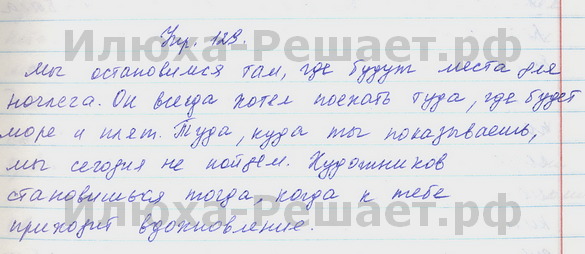 Илюха-Решает.рф
Упр. 129.
Мы остановимся там, где будут места для
ночлега. Он всегда хотел поехать туда, где будет
море и пляж. Туда, куда ты показываешь,
мы сегодня не пойдём. Художников
становишься тогда, когда к тебе
приходит вдохновление.
Илюха-Решает.рф